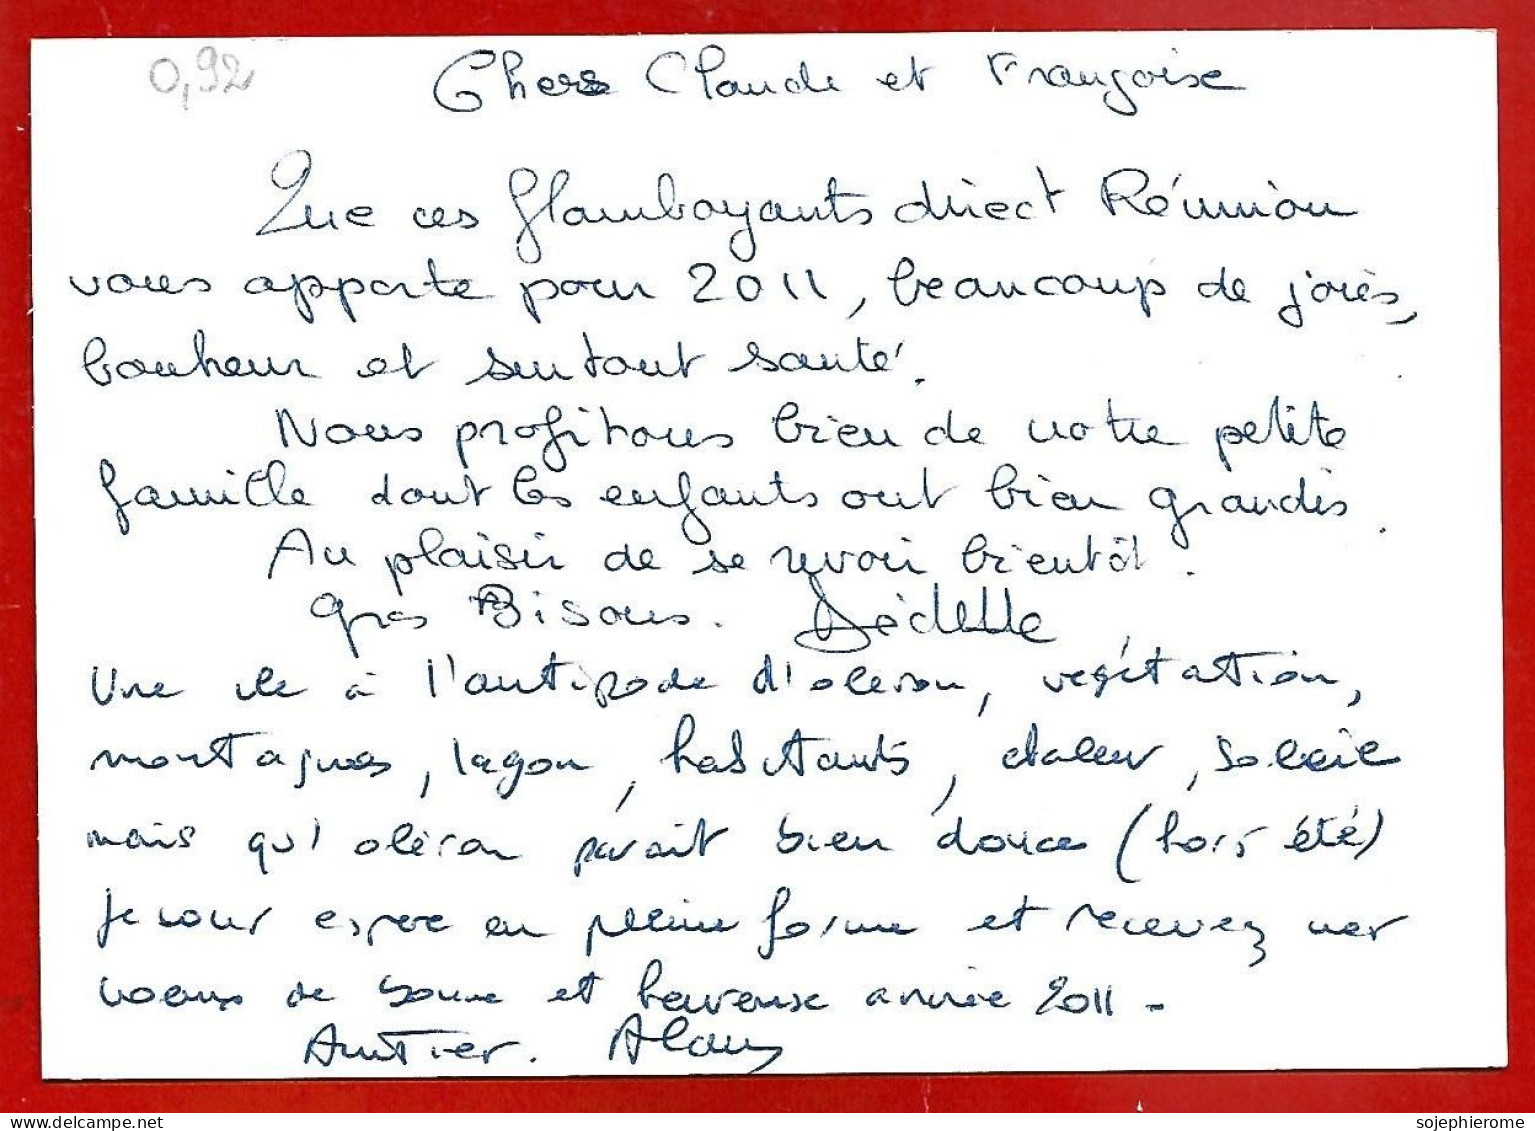 0,92
Chers Claude et Françoise
Que ces flamboyants direct Réunion
vous apporte pour 2011, beaucoup de joies,
bonheur et surtout santé.
Nous profitons bien de notre petite
famille dont les enfants ont bien grandis.
Au plaisir de se revoir bientôt.
Gros Bisous.
Une ile à l'antipode d'oleron, végétation,
montagnes, lagon, habitants, chaleur, soleil
mais qu'oléron parait bien douce (hors été)
Je vous espere en pleine forme et recevez mes
voeux de bonne et heureuse année 2011 -
Amitier. Alain
sojephierome